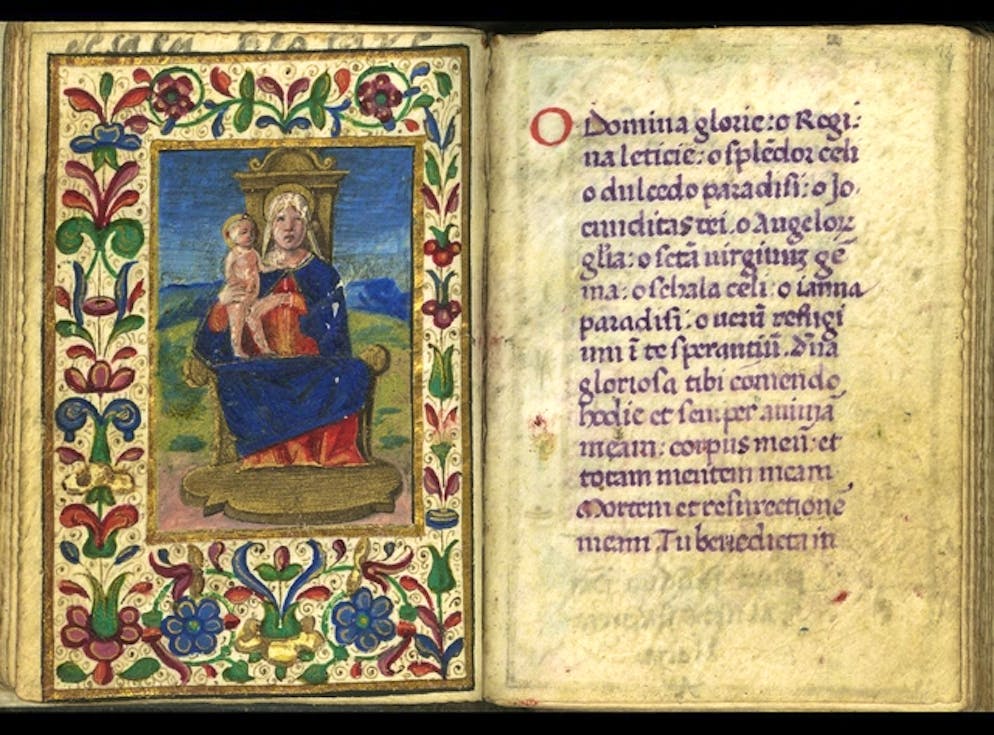 O Domina glorie: o Regi:
na leticie: o splēdor celi
o dulcedo paradisi: o Jo
cunditas rei. o Angeloꝝ
gl̄ia: o sctā uirginuꝫ gē
ma: o schala celi: o ianua
paradisi: o uerū refugi
um ī te sperantiū. Dn̄a
gloriosa tibi comendo
hodie et semper animā
meam: corpus meū: et
totam mentem meam
Mortem et resurrectionē
meam. Tu benedicta in